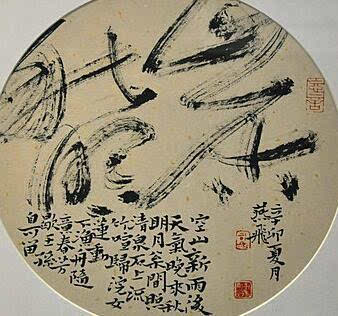 空山新雨後
天氣晚來秋
明月松間照
清泉石上流
竹喧歸浣女
蓮動
下漁舟隨
意春芳
歇王孫
自可留
辛卯夏月
燕飛